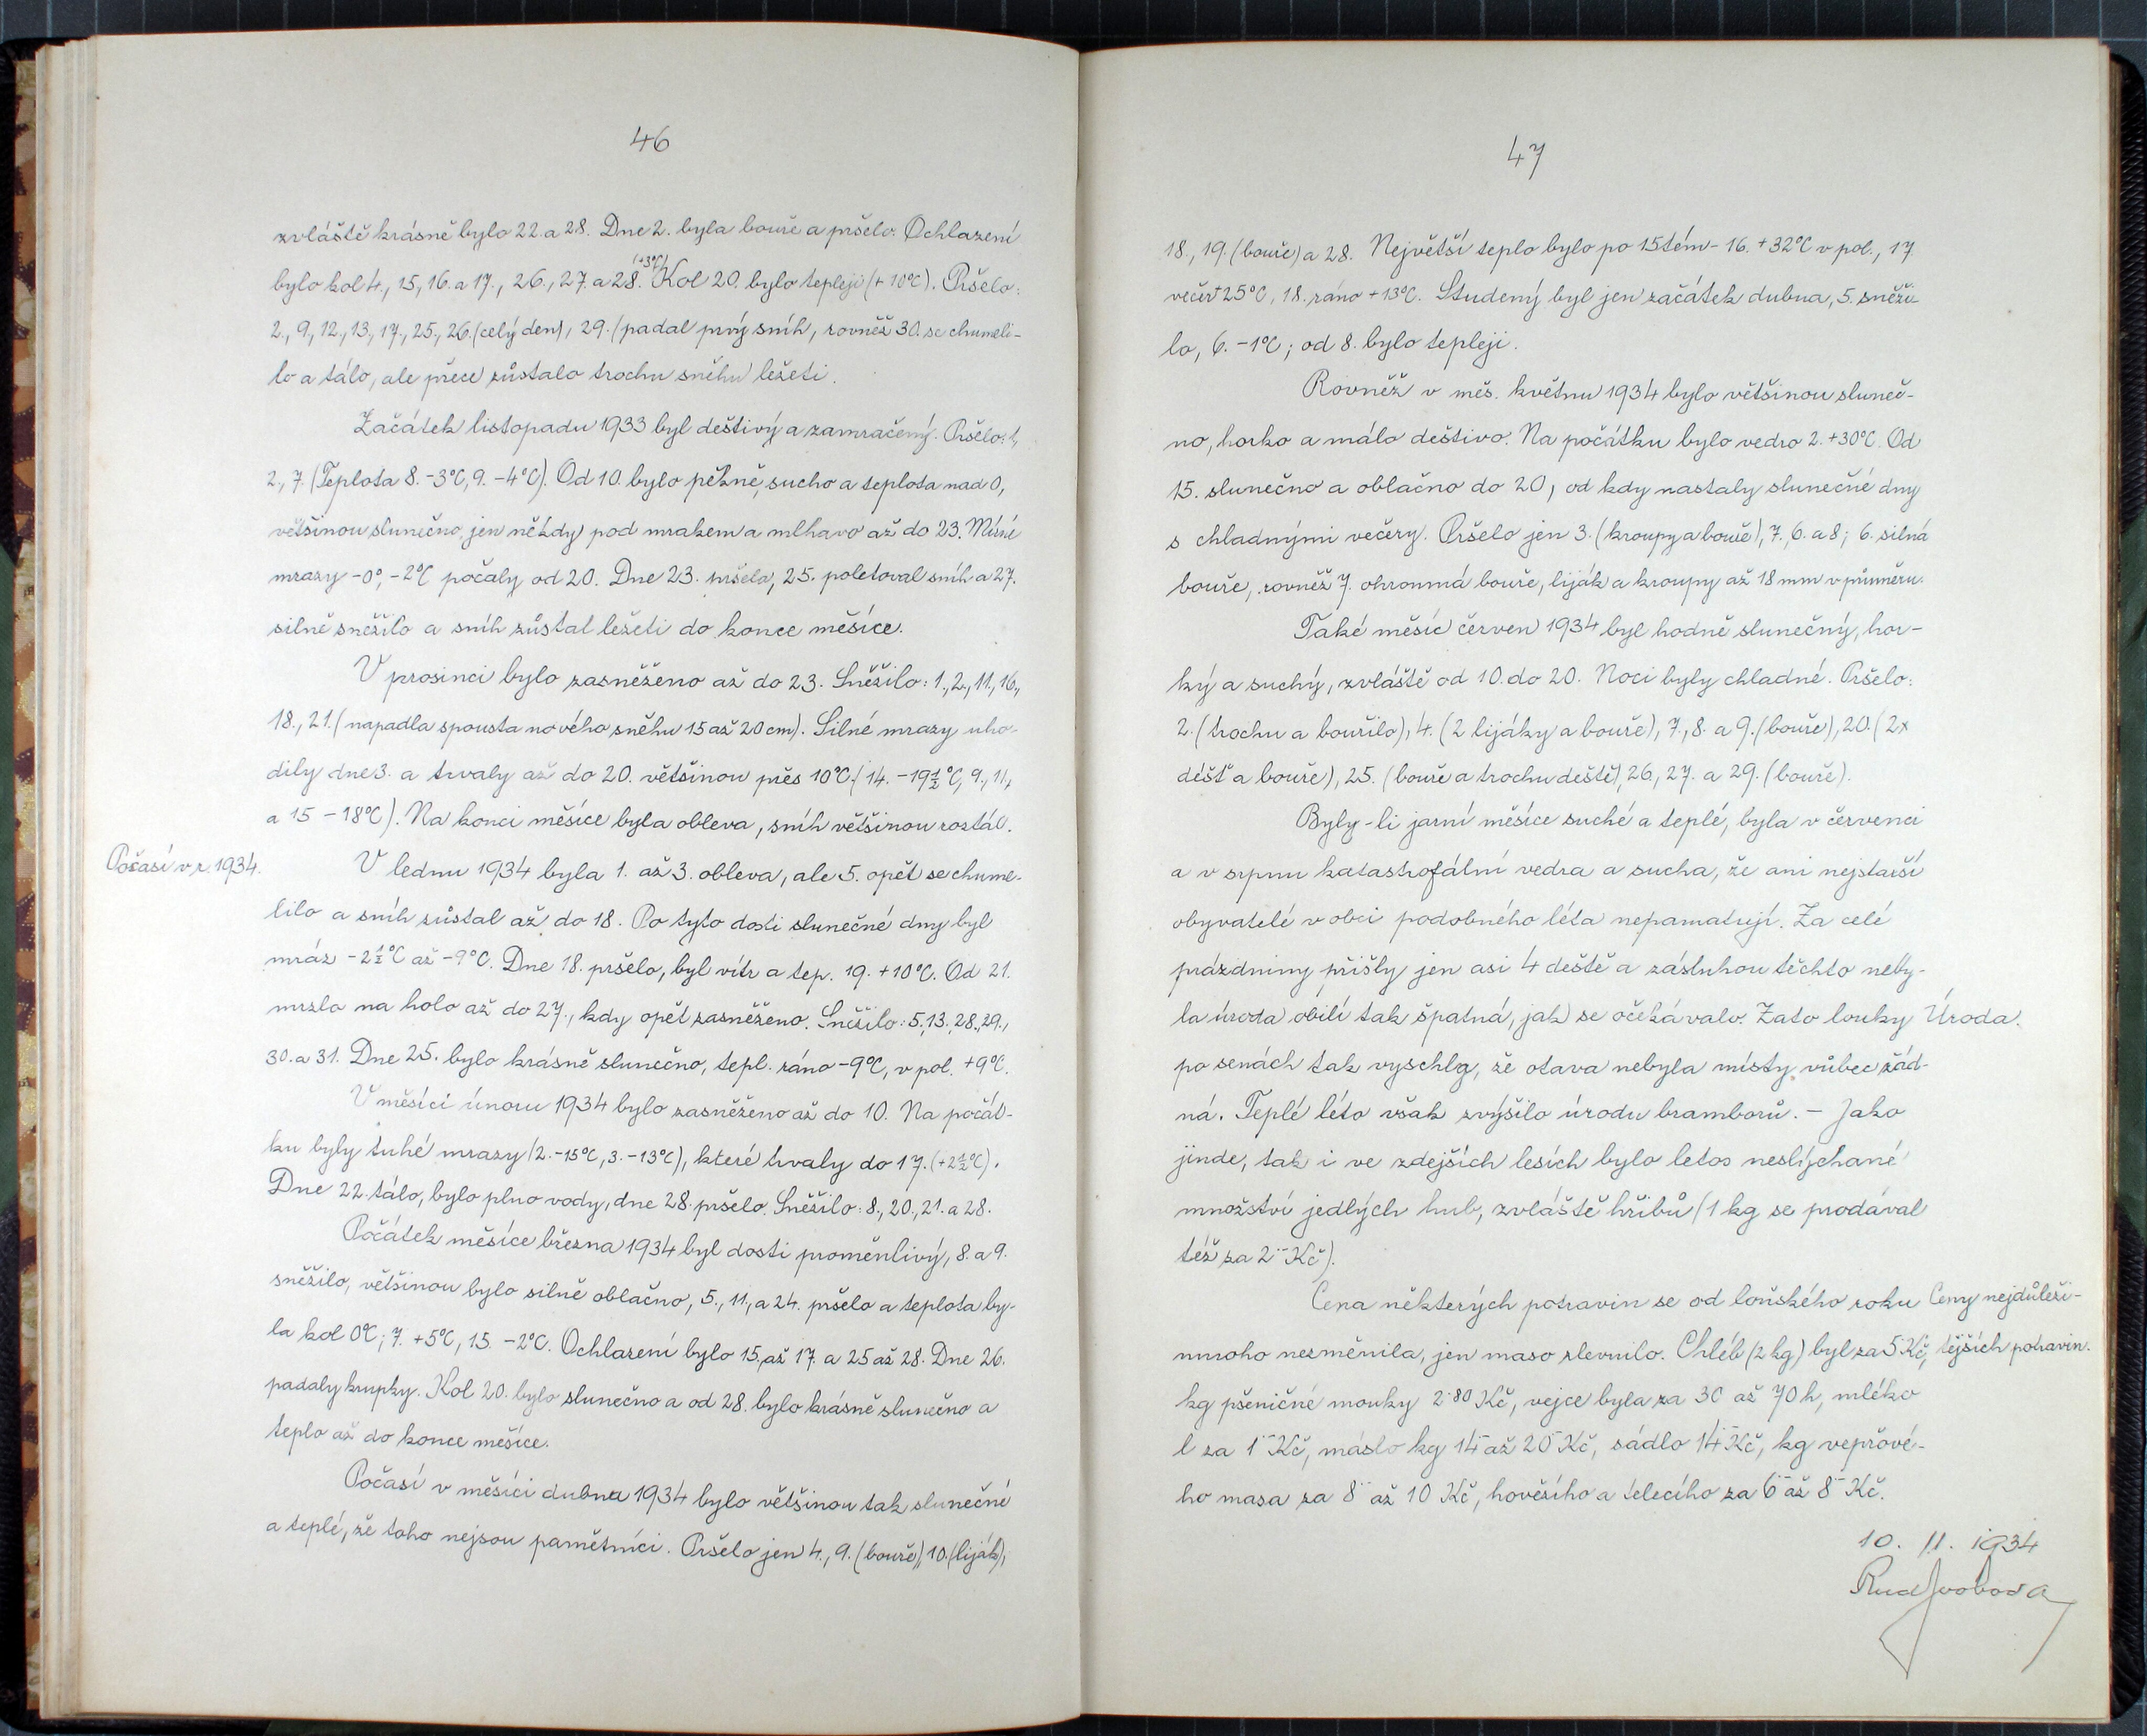 46
zvláště krásně bylo 22. a 28. Dne 2. byla bouře a pršelo. Ochlazení
(+3°C)
bylo kol 4., 15, 16. a 17., 26., 27. a 28. Kol 20. bylo tepleji (+10°C). Pršelo:
2., 9, 12., 13, 17., 25., 26. (celý den), 29. (padal prvý sníh, rovněž 30. se chumeli-
lo a tálo, ale přece zůstalo trochu sněhu ležeti.
Začátek listopadu 1933 byl deštivý a zamračený. Pršelo: 1,
2., 7. (Teplota 8. -3°C, 9. -4°C). Od 10. bylo pěkně, sucho a teplota nad 0,
většinou slunečno, jen někdy pod mrakem a mlhavo až do 23. Mírné
mrazy -0°, -2°C počaly od 20. Dne 23. pršelo, 25. poletoval sníh a 27.
silně sněžilo a sníh zůstal ležeti do konce měsíce.
V prosinci bylo zasněženo až do 23. Sněžilo: 1., 2., 11., 16.,
18., 21. (napadla spousta nového sněhu 15 až 20 cm). Silné mrazy uho-
dily dne 3. a trvaly až do 20. většinou přes 10°C (14. -19½°C, 9., 11.,
a 15 -18°C). Na konci měsíce byla obleva, sníh většinou roztál.
Počasí v r. 1934.
V lednu 1934 byla 1. až 3. obleva, ale 5. opět se chume-
lilo a sníh zůstal až do 18. Po tyto dosti slunečné dny byl
mráz -2½°C až -9°C. Dne 18. pršelo, byl vítr a tep. 19. +10°C. Od 21.
mrzlo na holo až do 27., kdy opět zasněženo. Sněžilo: 5., 13., 28., 29.,
30. a 31. Dne 25. bylo krásně slunečno, tepl. ráno -9°C, v pol. +9°C.
V měsíci únoru 1934 bylo zasněženo až do 10. Na počát-
ku byly tuhé mrazy (2. -15°C, 3. -13°C), které trvaly do 17. (+2½°C).
Dne 22. tálo, bylo plno vody, dne 28. pršelo. Sněžilo: 8., 20., 21. a 28.
Počátek měsíce března 1934 byl dosti proměnlivý, 8. a 9.
sněžilo, většinou bylo silně oblačno, 5., 11., a 24. pršelo a teplota by-
la kol 0°C; 7. +5°C, 15. -2°C. Ochlazení bylo 15. až 17. a 25 až 28. Dne 26.
padaly krupky. Kol 20. bylo slunečno a od 28. bylo krásně slunečno a
teplo až do konce měsíce.
Počasí v měsíci dubnu 1934 bylo většinou tak slunečné
a teplé, že toho nejsou pamětníci. Pršelo jen 4., 9. (bouře), 10. (liják),
47
18., 19. (bouře) a 28. Největší teplo bylo po 15tém - 16. +32°C v pol., 17
večer +25°C, 18. ráno +13°C. Studený byl jen začátek dubna, 5. sněži-
lo, 6. -1°C; od 8. bylo tepleji.
Rovněž v měs. květnu 1934 bylo většinou sluneč-
no, horko a málo deštivo. Na počátku bylo vedro 2. +30°C. Od
15. slunečno a oblačno do 20, od kdy nastaly slunečné dny
s chladnými večery. Pršelo jen 3. (kroupy a bouře), 7., 6. a 8; 6. silná
bouře, rovněž 7. ohromná bouře, liják a kroupy až 18 mm v průměru.
Také měsíc červen 1934 byl hodně slunečný, hor-
ký a suchý, zvláště od 10. do 20. Noci byly chladné. Pršelo:
2. (trochu a bouřilo), 4. (2 lijáky a bouře), 7., 8. a 9. (bouře), 20. (2x
déšť a bouře), 25. (bouře a trochu deště), 26, 27. a 29. (bouře).
Byly-li jarní měsíce suché a teplé, byla v červenci
a v srpnu katastrofální vedra a sucha, že ani nejstarší
obyvatelé v obci podobného léta nepamatují. Za celé
prázdniny přišly jen asi 4 deště a zásluhou těchto neby-
la úroda obilí tak špatná, jak se očekávalo. Zato louky
Úroda.
po senách tak vyschly, že otava nebyla místy vůbec žád-
ná. Teplé léto však zvýšilo úrodu bramborů. - Jako
jinde, tak i ve zdejších lesích bylo letos neslýchané
množství jedlých hub, zvláště hřibů (1 kg se prodával
též za 2·- Kč).
Cena některých potravin se od loňského roku
Ceny nejdůleži-
mnoho nezměnila, jen maso zlevnilo. Chléb (2 kg) byl za 5 Kč,
tějších potravin.
kg pšeničné mouky 2·80 Kč, vejce byla za 30 až 70 h, mléko
l za 1·- Kč, máslo kg 14·- až 20·- Kč, sádlo 14·- Kč, kg vepřové-
ho masa za 8·- až 10 Kč, hovězího a telecího za 6·- až 8·- Kč.
10. 11. 1934
Rud Svoboda